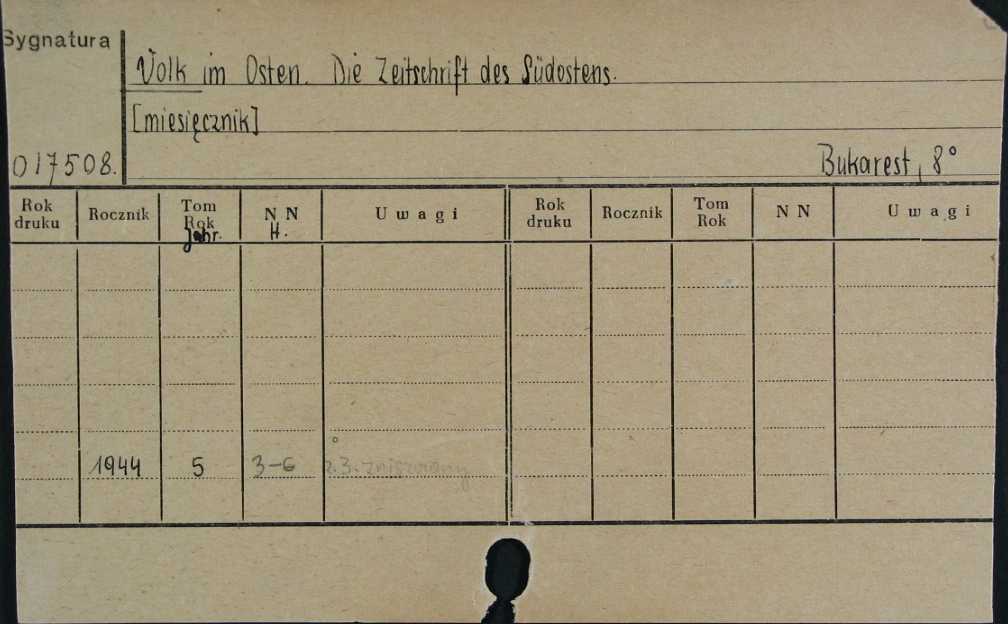 Sygnatura
Volk im Osten. Die Zeitschrift des Südostens.
[miesięcznik]
017508.
Bukarest, 8°
Rok druku Rocznik Tom Rok Jahr. NN H. Uwagi Rok druku Rocznik Tom Rok NN Uwagi
1944 5 3-6 z.3. zniszczony